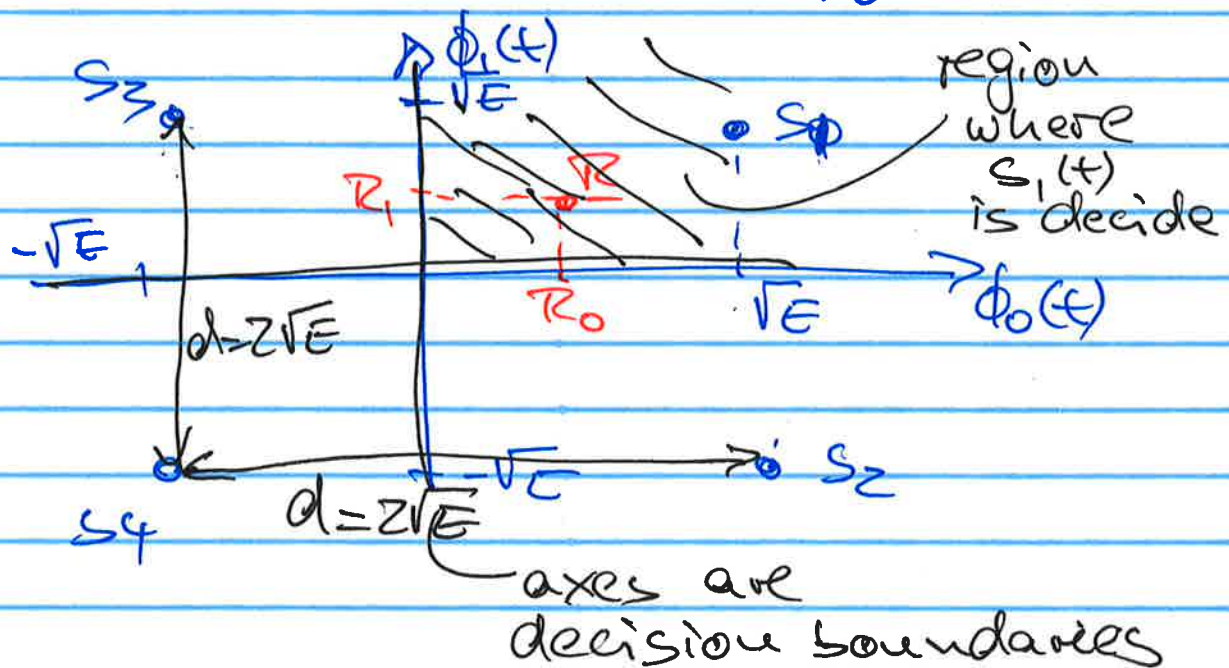 ϕ₁(t)
√E
S₃
region
where
S₁(t)
is decide
S₁
R₁
R
-√E
R₀
√E
ϕ₀(t)
d=2√E
-√E
S₂
d=2√E
S4
axes are
decision boundaries